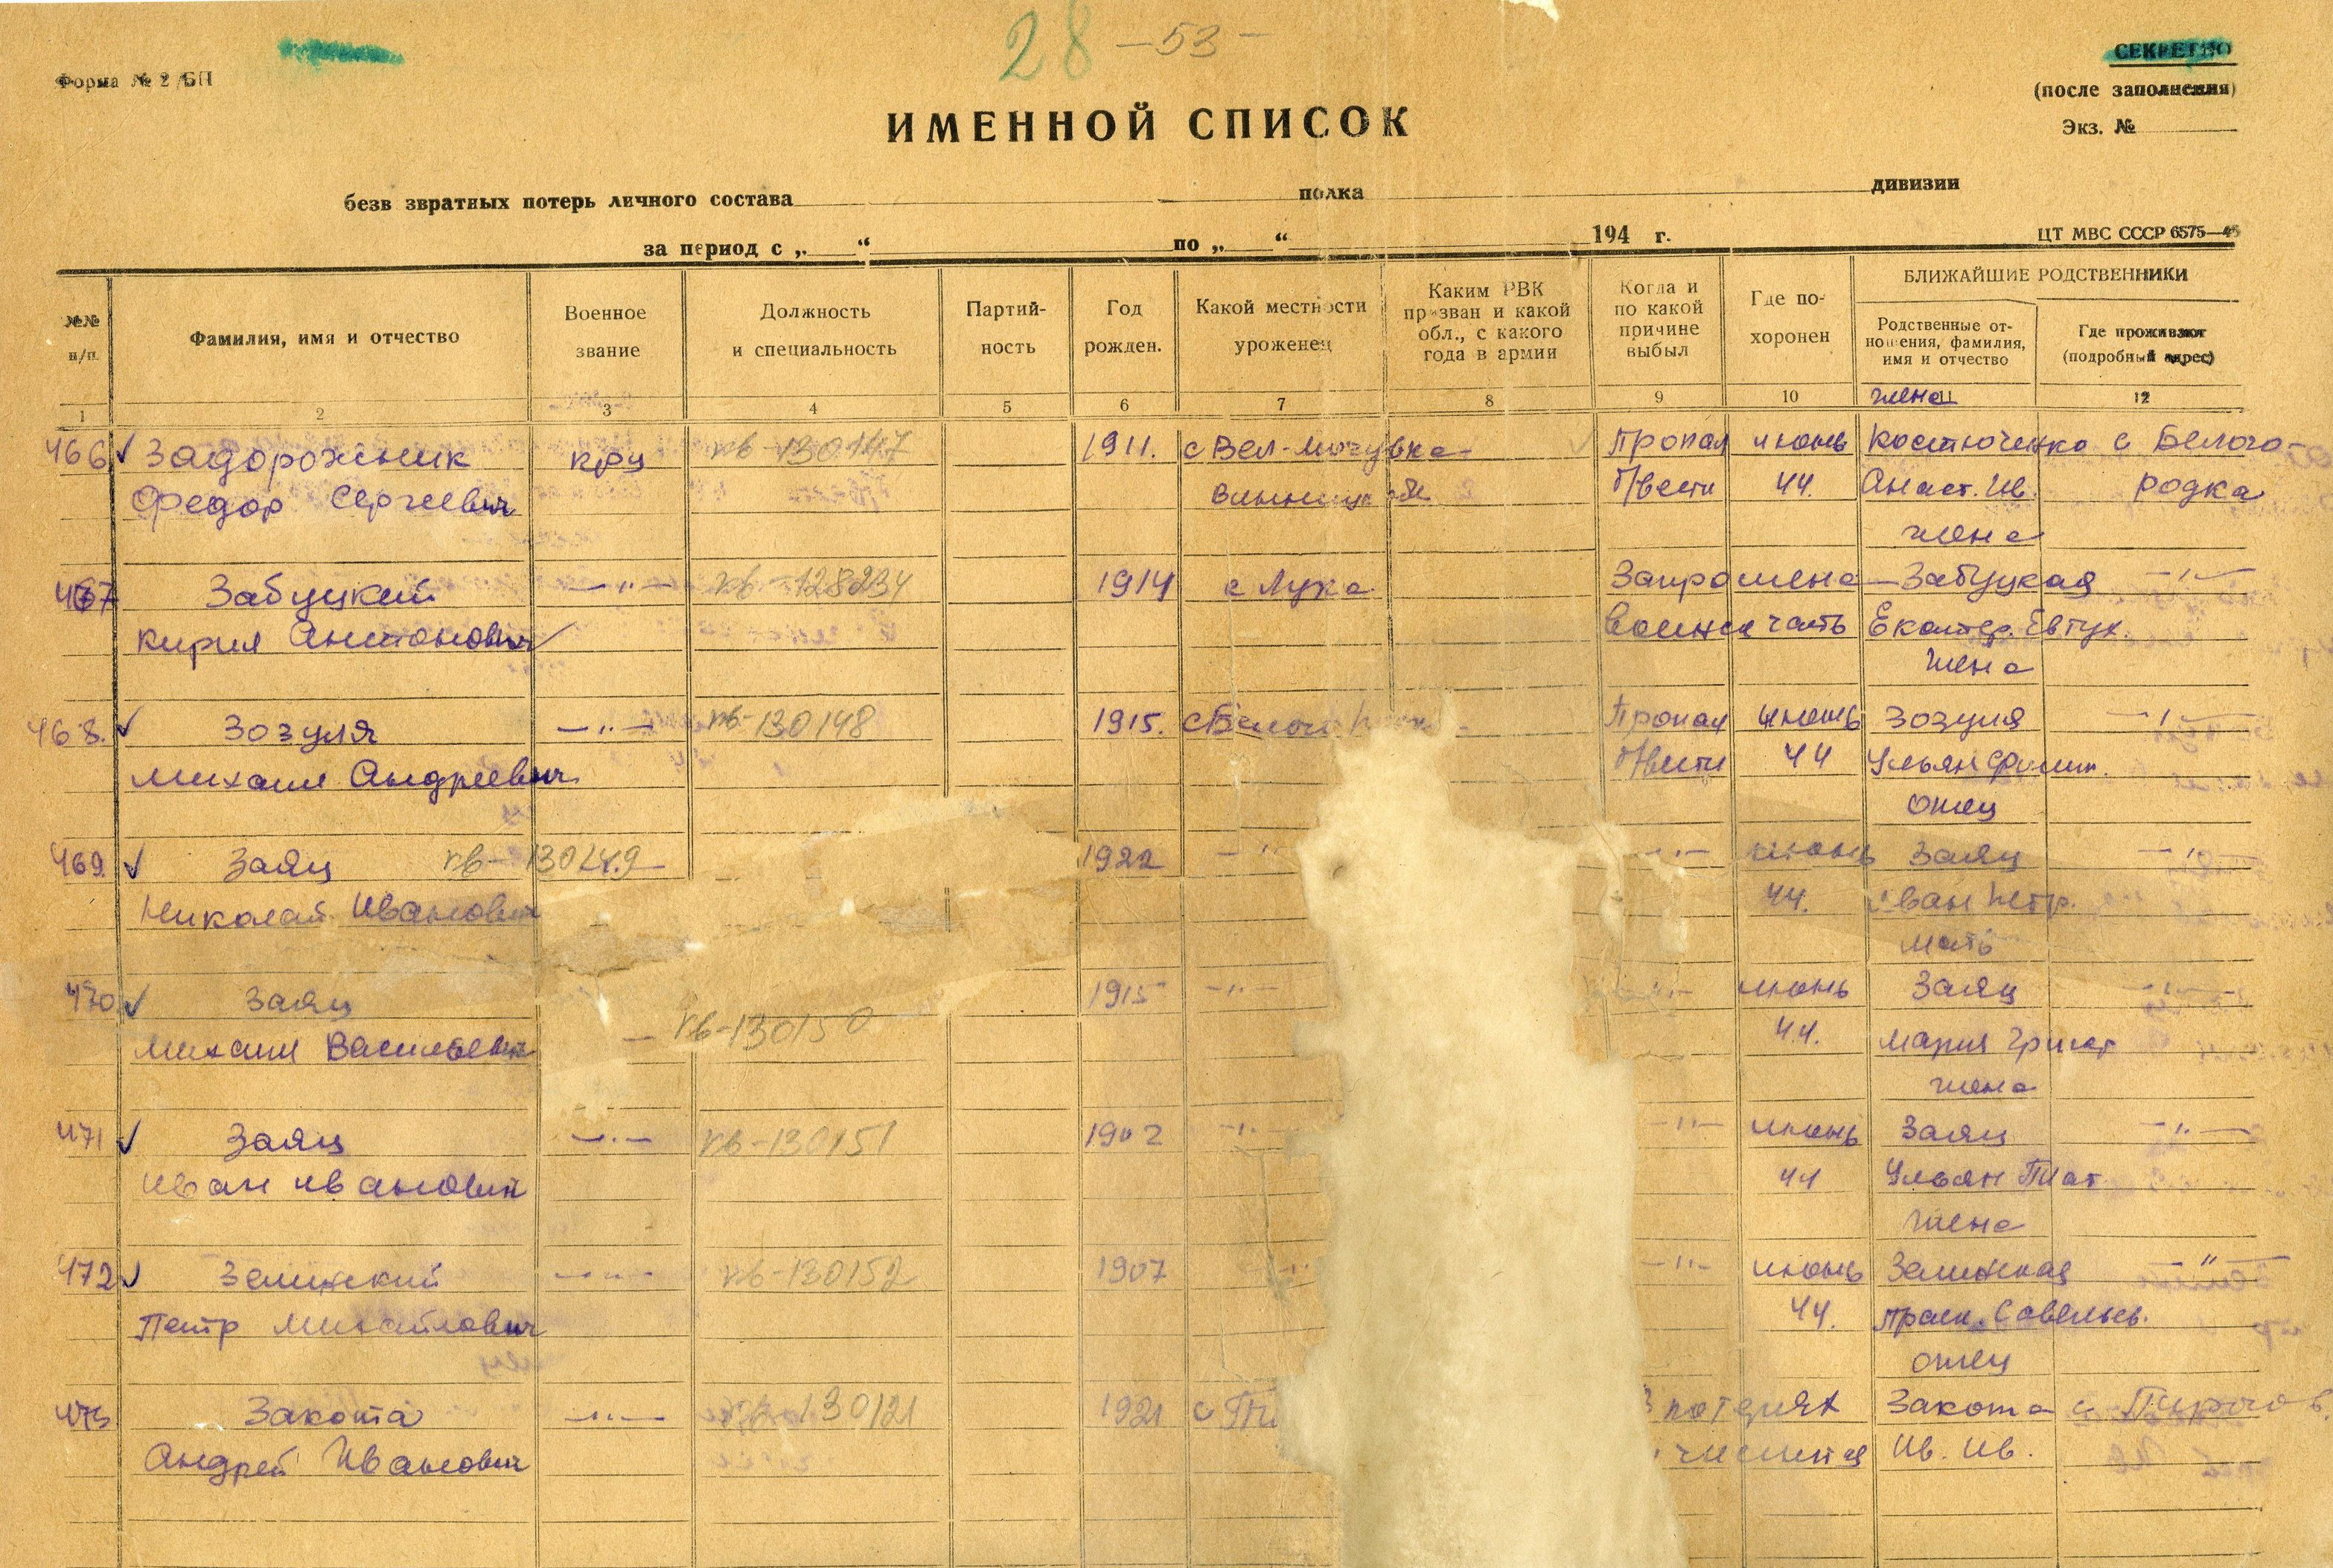 28 — 53 —
Форма № 2 /БП
СЕКРЕТНО
(после заполнения)
Экз. №
ИМЕННОЙ СПИСОК
безв звратных потерь личного состава полка дивизии
за период с „ “ по „ “ 194 г.
ЦТ МВС СССР 6575—45
№№ п/п.
Фамилия, имя и отчество
Военное звание
Должность и специальность
Партий-
ность
Год рожден.
Какой местности уроженец
Каким РВК
призван и какой
обл., с какого
года в армии
Когда и
по какой
причине
выбыл
Где по-
хоронен
БЛИЖАЙШИЕ РОДСТВЕННИКИ
Родственные от-
ношения, фамилия,
имя и отчество
Где проживают
(подробный адрес)
1 2 3 4 5 6 7 8 9 10 11 12
жена
466 ✓ Задорожник кр-ц кв-130147 1911. с Вел-Мочувка- Пропал июнь Костюченко с Белого-
Федор Сергеевич б/вести 44. Анаст. Ив. родка
жена
467 Забуцкий —"— кв-128234 1914 с Лука Запрошена Забуцкая —"—
Кирил Антонович часть Екатер. Евтух.
жена
468. ✓ Зозуля —"— кв-130148 1915. Пропал июнь Зозуля —"—
Михаил Андреевич б/вести 44
отец
469. ✓ Заяц кв-130149 1922 —" —"— июнь Заяц —"—
Николай Иванович 44. Иван Петр.
мать
470 ✓ Заяц кв-130150 1915 —"— —"— июнь Заяц —"—
Михаил Васильевич 44. Мария Григ
жена
471 ✓ Заяц —"— кв-130151 1902 —" —"— июнь Заяц —"—
Иван Иванович 44
жена
472 ✓ Зелинский —"— кв-130152 1907 —"— июнь Зелинская —"—
Петр Михайлович 44. Праск. Савельев.
отец
473 Закота —"— 130121 1921 с Пи потерях Закота с
Андрей Иванович числится Ив. Ив.